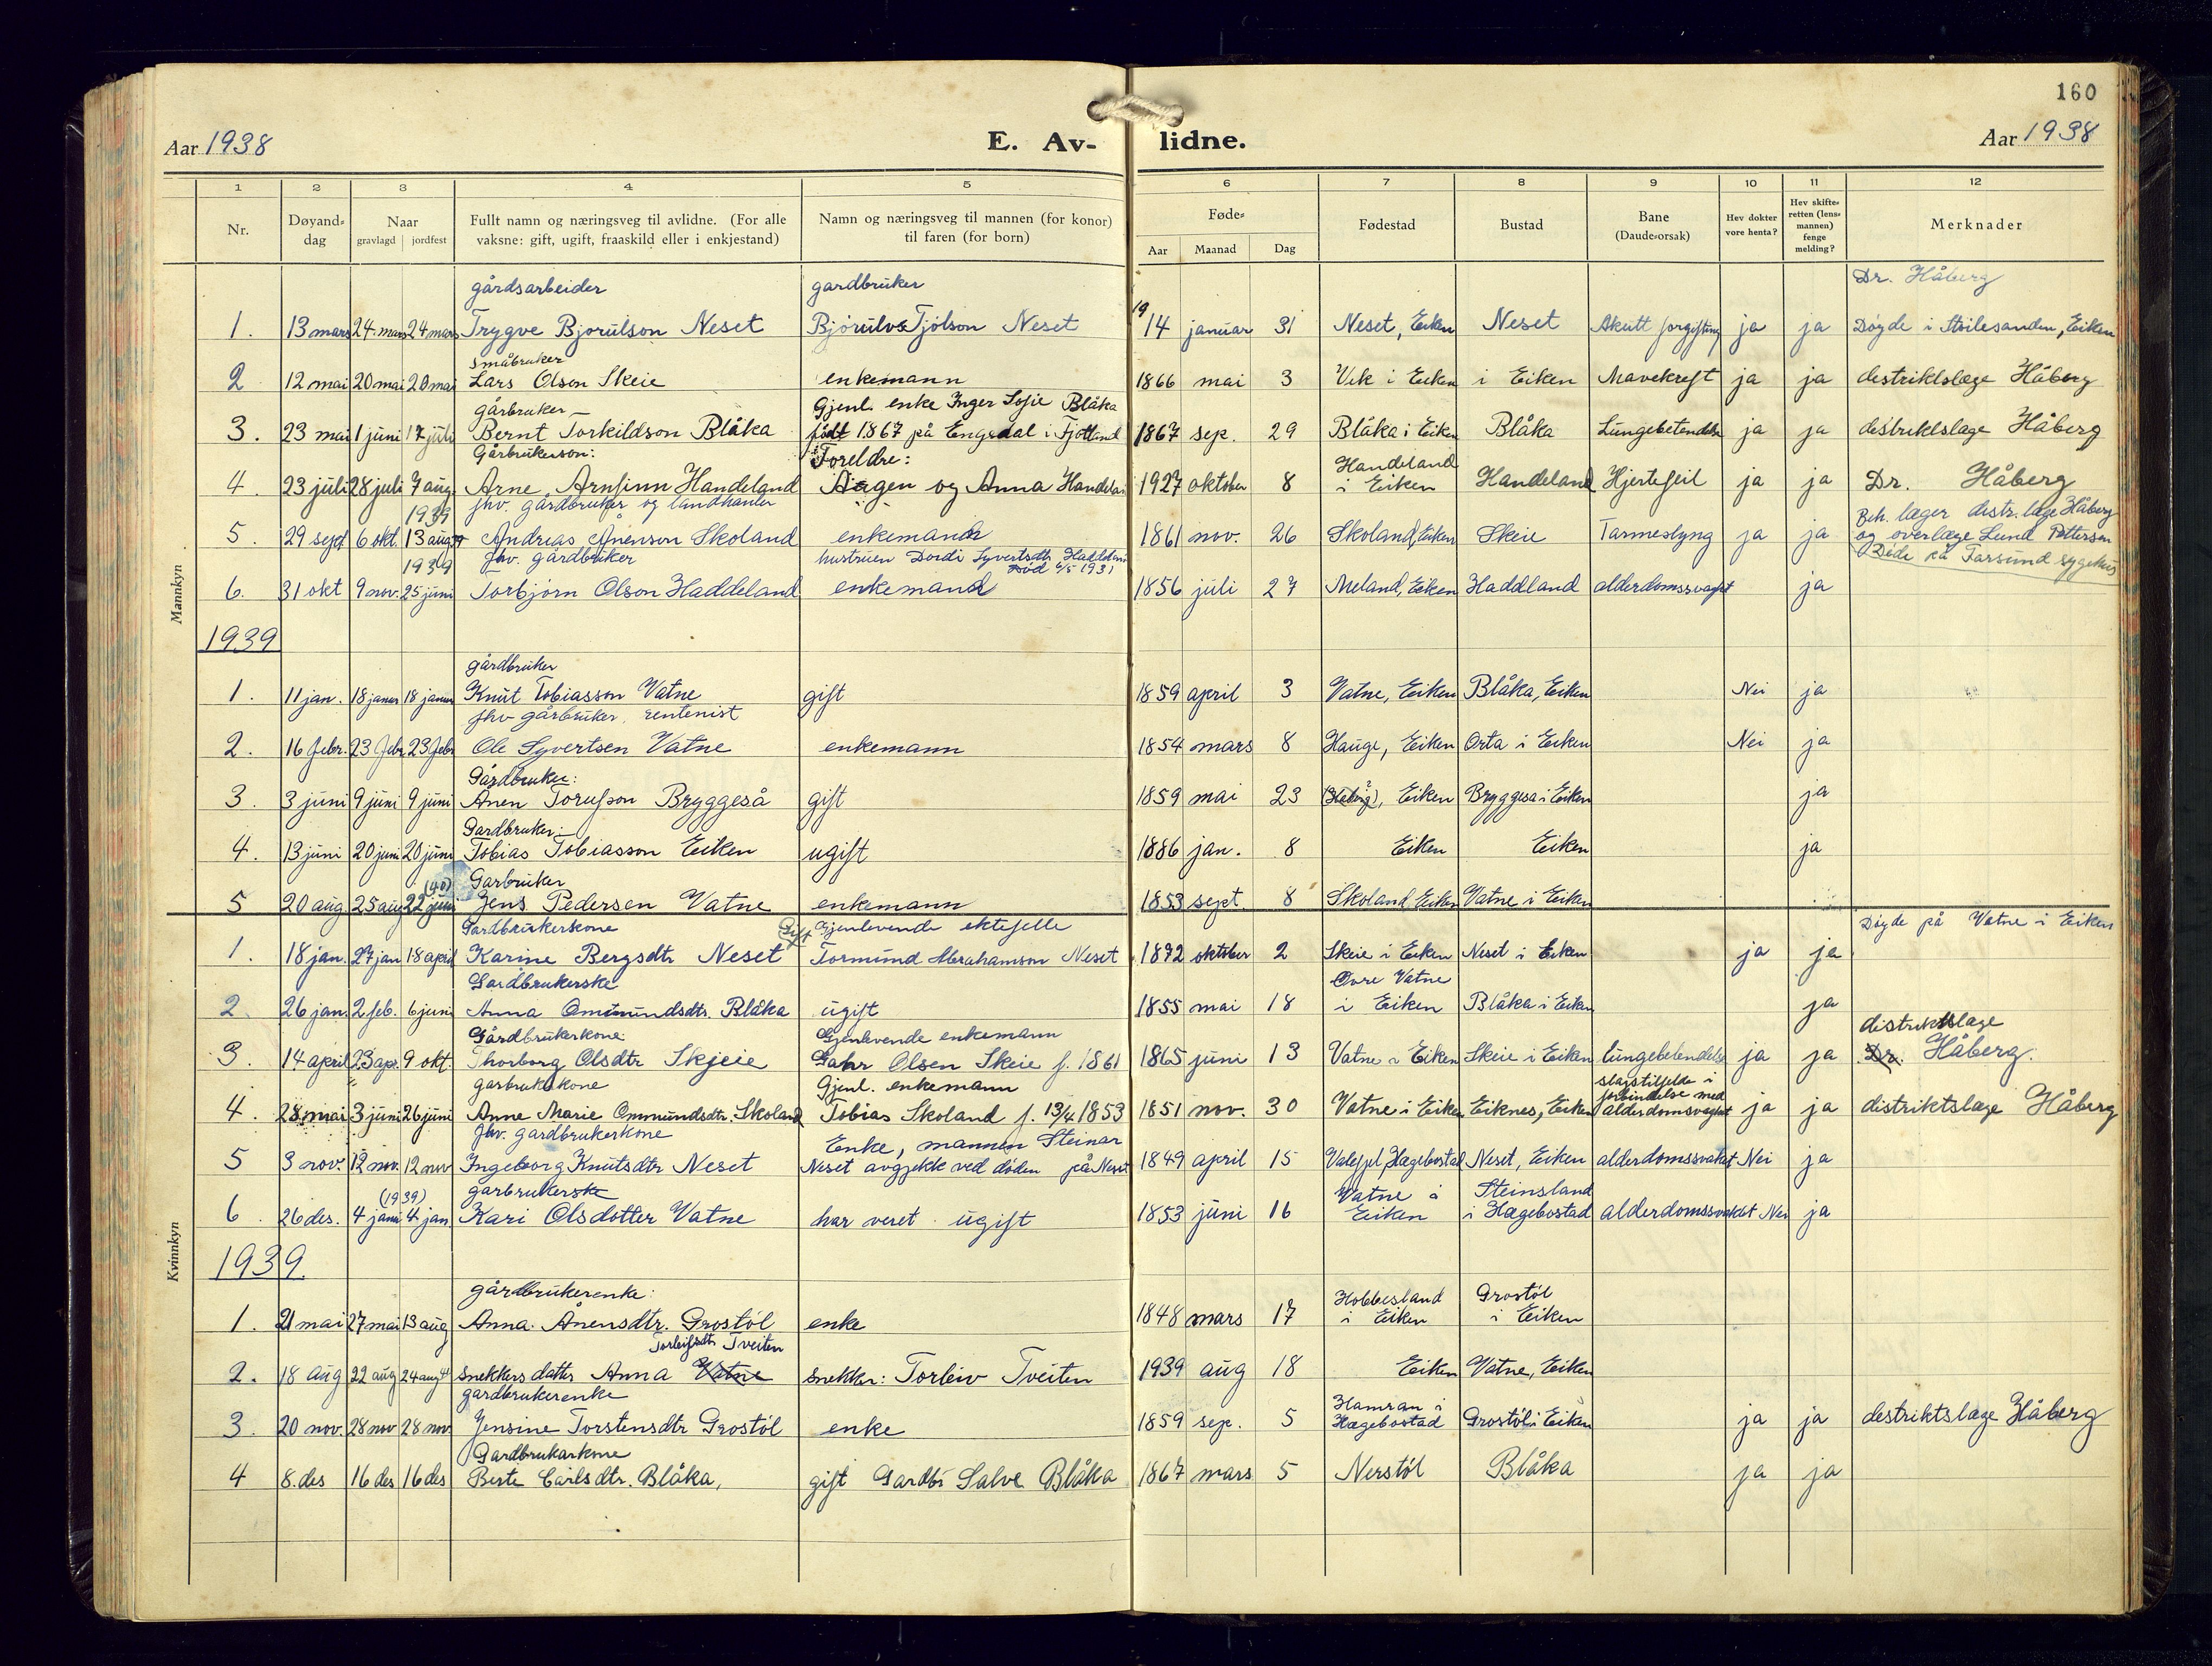 160
Aar 1938 E. Av- lidne. Aar 1938
1 2 3 4 5 6 7 8 9 10 11 12
Nr. Døyand-dag Naar gravlagd jordfest Fullt namn og næringsveg til avlidne. (For alle vaksne: gift, ugift, fraaskild eller i enkjestand) Namn og næringsveg til mannen (for konor) til faren (for born) Føde- Aar Maanad Dag Fødestad Bustad Bane (Daude-orsak) Hev dokter vore henta? Hev skifte-retten (lens-mannen) fenge melding? Merknader
Mannkyn
gårdsarbeider gardbruker 19 Dr. Håberg
1. 13 mars 24. mars 24 mars Trygve Bjorulson Neset Bjorulv Tjölson Neset 14 januar 31 Neset, Eiken Neset Akutt forgiftning ja ja Döyde i Eiken
småbruker
2 12 mai 20 mai 20 mai Lars Olson Skeie enkemann 1866 mai 3 Vik i Eiken i Eiken Mavekreft ja ja distriktslæge Håberg
gårbruker Gjenl. enke Inger Sofie Blåka
3. 23 mai 1 juni 17 juli Bernt Torkildson Blåka født 1867 på Engedal i Fjotland 1867 sep. 29 Blåka i Eiken Blåka Lungebetendelse ja ja distriktslæge Håberg
Gårbrukerson: Foreldre: Handeland
4. 23 juli 28 juli 7 aug. Arne Arnfinn Handeland Aagen og Anna Handeland 1927 oktober 8 i Eiken Handeland Hjertefeil ja ja Dr. Håberg
1939 fhv. gårdbruker og landhandler Beh. læger distr. læge Håberg
5. 29 sept 6 okt. 13 aug. Andreas Ånenson Skoland enkemann 1861 nov. 26 Skoland, Eiken Skeie Tarmeslyng ja ja og overlæge Lund Pettersen
1939 fhv. gårdbruker hustruen Dordi Syvertsdtr. Haddeland død 6/5 1931 Döde på Farsund sygehus
6. 31 okt 9 nov. 25 juni Torbjörn Olson Haddeland enkemann 1856 juli 27 Meland, Eiken Haddland alderdomssvaghet ja
1939
gårdbruker
1. 11 jan. 18 januar 18 januar Knut Tobiasson Vatne gift 1859 april 3 Vatne, Eiken Blåka, Eiken Nei ja
fhv gårbruker, rentenist
2. 16 febr. 23 febr 23 febr Ole Syvertsen Vatne enkemann 1854 mars 8 Hauge, Eiken Orta i Eiken Nei ja
Gårdbruker:
3. 3 juni 9 juni 9 juni Ånen Torufson Bryggeså gift 1859 mai 23 Eiken Bryggesa i Eiken ja
Gardbruker:
4. 13 juni 20 juni 20 juni Tobias Tobiasson Eiken ugift 1886 jan. 8 Eiken Eiken ja
(40) Garbruker
5 20 aug 25 aug 22 juni Jens Pedersen Vatne enkemann 1853 sept. 8 Skoland Eiken Vatne i Eiken
Kvinnkyn
Gardbrukerskone Gift Gjenlevende ektefelle Döyde på Vatne i Eiken
1. 18 jan. 27 jan 18 april Karine Bergsdtr Neset Tormund Abrahamson Neset 1892 oktober 2 Skeie i Eiken Neset i Eiken ja ja
Gårdbrukerske Övre Vatne
2. 26 jan. 2 feb. 6 juni Anna Ommundsdtr. Blåka ugift 1855 mai 18 i Eiken Blåka i Eiken ja
Gårdbrukerkone: Gjenlevende enkemann distriktslæge
3. 14 april 23 apr. 9 okt. Thorborg Olsdtr Skjeie Gahr Olsen Skeie f. 1861 1865 juni 13 Vatne i Eiken Skeie i Eiken lungebetendelse ja ja Dr. Håberg.
garbrukskone Gjenl. enkemann slagtilfelde i forbindelse med
4. 28 mai 3 juni 26 juni Anne Marie Ommundsdtr. Skoland Tobias Skoland f. 13/4 1853 1851 nov. 30 Vatne i Eiken Eiknes, Eiken alderdomsvaghet ja ja distriktslæge Håberg
fhv. gardbrukerkone Enke, mannen Steinar
5 3 nov. 12 nov. 12 nov Ingeborg Knutsdtr Neset Neset avgjekk ved döden på Neset 1849 april 15 Hægebostad Neset, Eiken alderdomssvakhet Nei ja
(1939) garbrukerske Vatne i Steinsland
6. 26 des. 4 jan 4 jan Kari Olsdotter Vatne har veret ugift 1853 juni 16 Eiken i Hægebostad alderdomssvakhet Nei ja
1939.
gårdbrukerenke: Hobbesland Grostöl
1. 21 mai 27 mai 13 aug Anna Ånensdtr. Grostöl enke 1848 mars 17 i Eiken i Eiken
Torleifsdtr Tveiten
2. 18 aug 22 aug 24 aug snekkers datter Anna Vatne snekker: Torleiv Tveiten 1939 aug 18 Eiken Vatne, Eiken
gardbrukerenke Hamran i
3. 20 nov. 28 nov 28 nov Jensine Torstensdtr Grostöl enke 1859 sep. 5 Hægebostad Grostöl i Eiken ja ja distriktslæge Håberg
Gardbrukarkone
4 8. des 16 des 16 des Berte Carlsdtr. Blåka, gift Gardbr Salve Blåka 1867 mars 5 Nerstöl Blåka ja ja